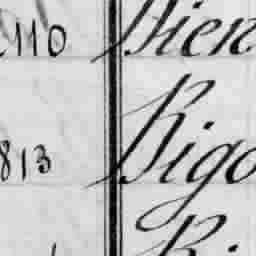 110 Bien
813 Bigo
Bi